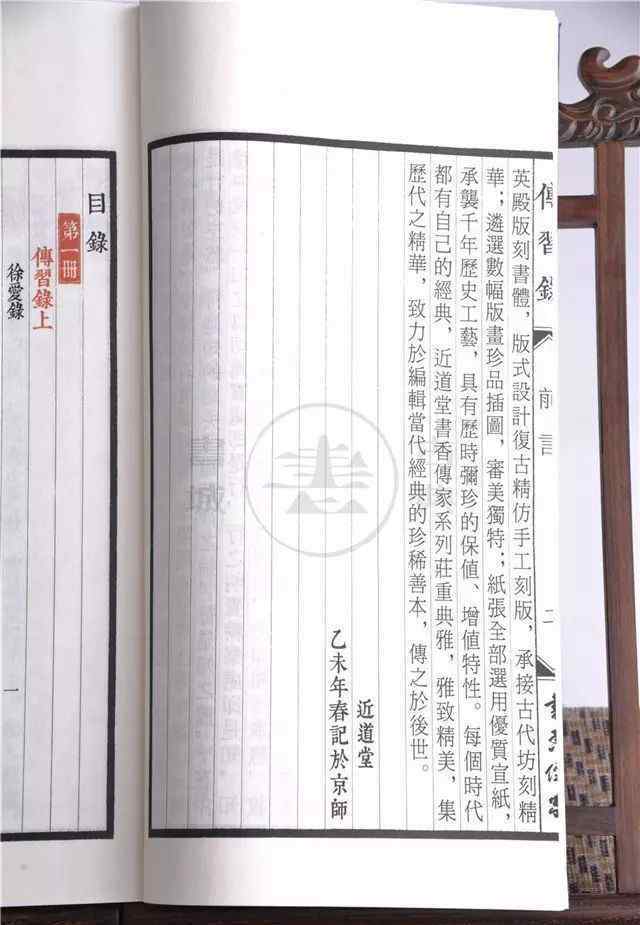 傳習錄
前言
二
英殿版刻書體，版式設計復古精仿手工刻版，承接古代坊刻精
華；遴選數幅版畫珍品插圖，審美獨特；紙張全部選用優質宣紙，
承襲千年歷史工藝，具有歷時彌珍的保値、增値特性。每個時代
都有自己的經典，近道堂書香傳家系列莊重典雅，雅致精美，集
歷代之精華，致力於編輯當代經典的珍稀善本，傳之於後世。
近道堂
乙未年春記於京師
目錄
第一冊
傳習錄上
徐愛錄
一